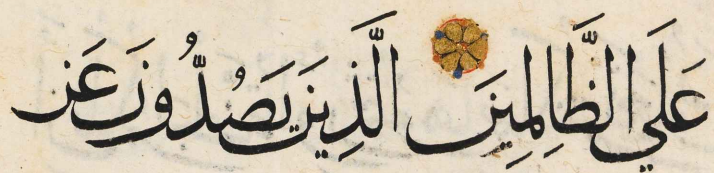 عَلَي الظَّالِمِينَ الَّذِينَ يَصُدُّونَ عَن